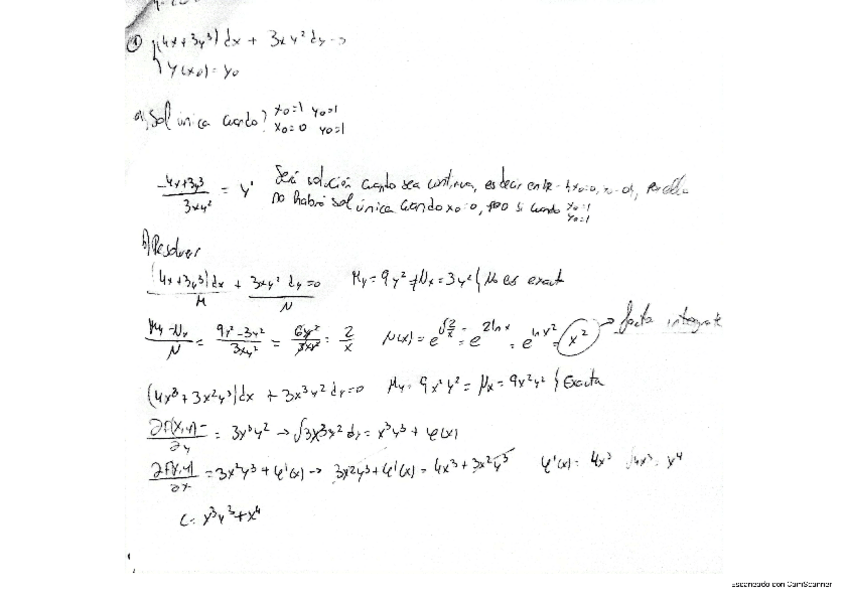 ① (4x+3y³)dx + 3xy² dy = 0
y(x0) = y0
a) Sol única cuando? x0=1 y0=1
x0=0 y0=1
-4x+3y³ / 3xy² = y' Será solución cuando sea continua, es decir
no habrá sol única cuando x0=0, pero si cuando x0=1
y0=1
b) Resolver
(4x+3y³)dx + 3xy² dy=0 My = 9y² ≠ Nx = 3y² } No es exact
M N
My-Nx / N = 9y²-3y² / 3xy² = 6y² / 3xy² = 2/x μ(x) = e^∫2/x = e^2lnx = e^lnx² = x² → facto integrante
(4x³+3x²y³)dx + 3x³y² dy=0 My = 9x²y² = Nx = 9x²y² } Exacta
∂f(x,y) / ∂y = 3x³y² → ∫3x³y² dy = x³y³ + φ(x)
∂f(x,y) / ∂x = 3x²y³ + φ'(x) → 3x²y³ + φ'(x) = 4x³ + 3x²y³ φ'(x) = 4x³ ∫4x³ = x⁴
C = x³y³ + x⁴
Escaneado con CamScanner